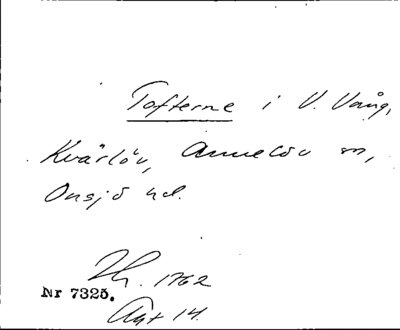 Tofterne i V. Vång,
Kvärlöv, Annelöv sn,
Onsjö hd.
Lh. 1762
Nr 7325.
Akt 14.